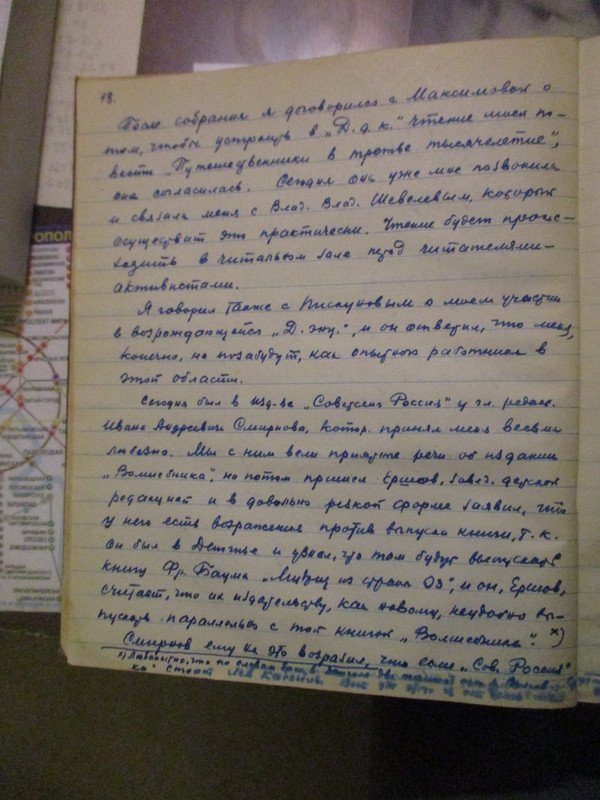 18.
После собрания я договорился с Максимовой о
том, чтобы устроить в „Д. д. к." чтение моей по-
вести „Путешественники в третье тысячелетие",
она согласилась. Сегодня она уже мне позвонила
и связала меня с Влад. Влад. Шевелевым, который
осуществит это практически. Чтение будет проис-
ходить в читальном зале перед читателями-
активистами.
Я говорил также с Пискуновым о моем участии
в возрождающейся „Д. энц.", и он ответил, что меня,
конечно, не позабудут, как опытного работника в
этой области.
Сегодня был в изд-ве „Советская Россия" у гл. редак.
Ивана Андреевича Смирнова, котор. принял меня весьма
любезно. Мы с ним вели приятные речи об издании
„Волшебника", но потом пришел Ершов, завед. детской
редакцией и в довольно резкой форме заявил, что
у него есть возражения против выпуска книги, т. к.
он был в Детгизе и узнал, что там будут выпускать
книгу Фр. Баума „Мудрец из страны Оз", и он, Ершов,
считает, что их издательству, как новому, неудобно вы-
пускать параллельно с той книгой „Волшебника". х)
Смирнов ему на это возразил, что если „Сов. Россия"
х) Любопытно, что по словам
ка" стоит Лев Кассиль. Вот
ОПОЛ